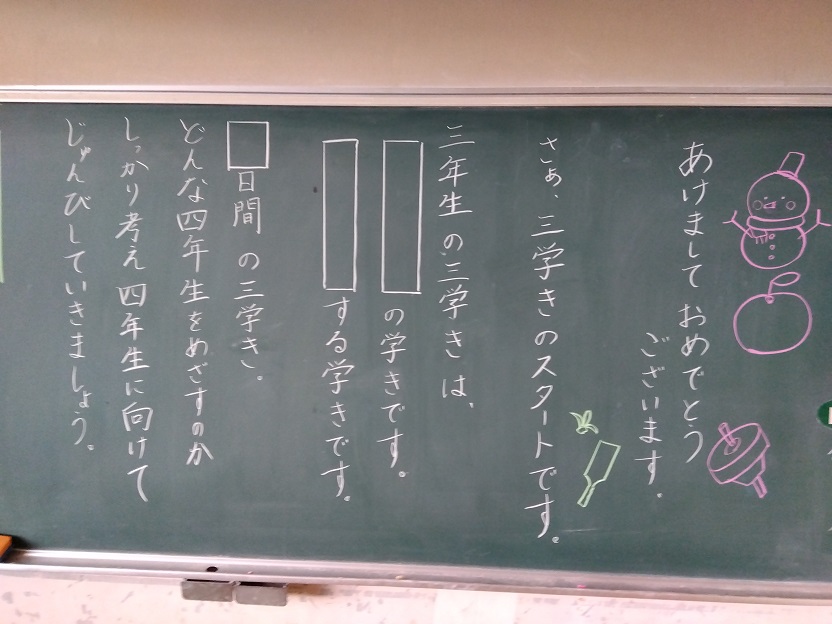 あけまして おめでとう
ございます。
さぁ、三学きのスタートです。
三年生の三学きは、
の学きです。
する学きです。
日間の三学き。
どんな四年生をめざすのか
しっかり考え四年生に向けて
じゅんびしていきましょう。